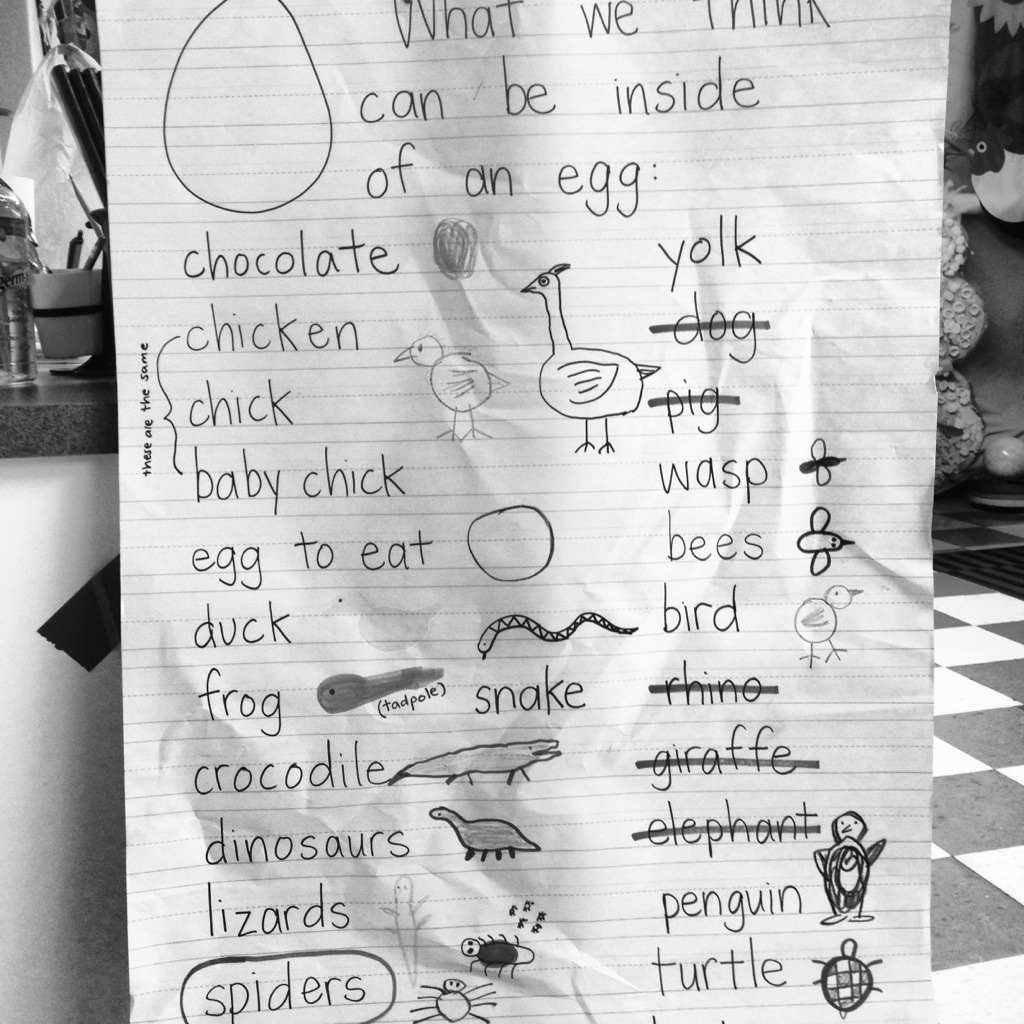 What we think
can be inside
of an egg:
chocolate
chicken
these are the same
chick
baby chick
egg to eat
duck
frog
(tadpole)
snake
crocodile
dinosaurs
lizards
spiders
yolk
dog
pig
wasp
bees
bird
rhino
giraffe
elephant
penguin
turtle